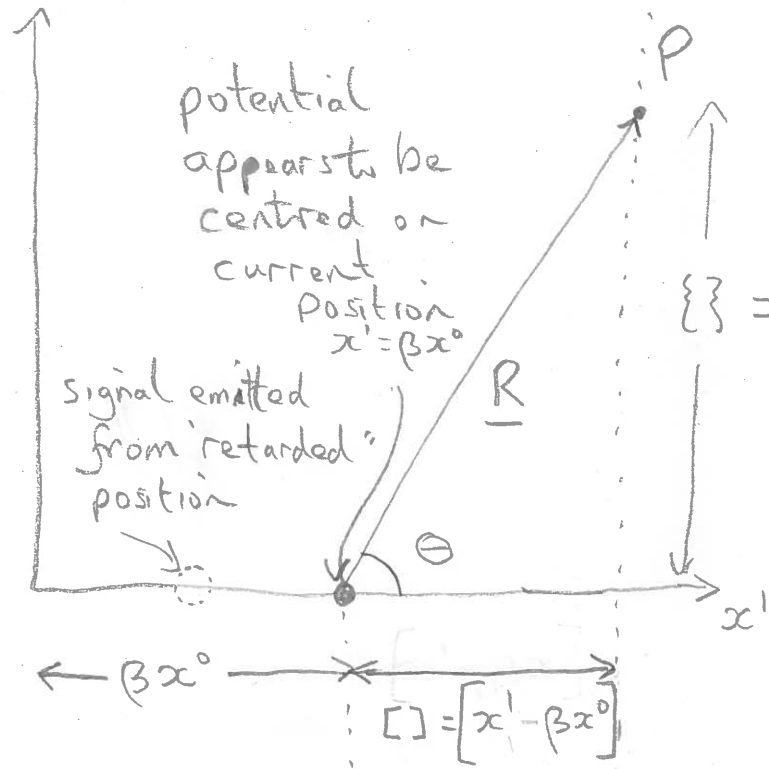 P
potential
appears to be
centred on
current
position
x' = βx⁰
{} =
R
signal emitted
from "retarded"
position
θ
x'
βx⁰
[] = [x' - βx⁰]